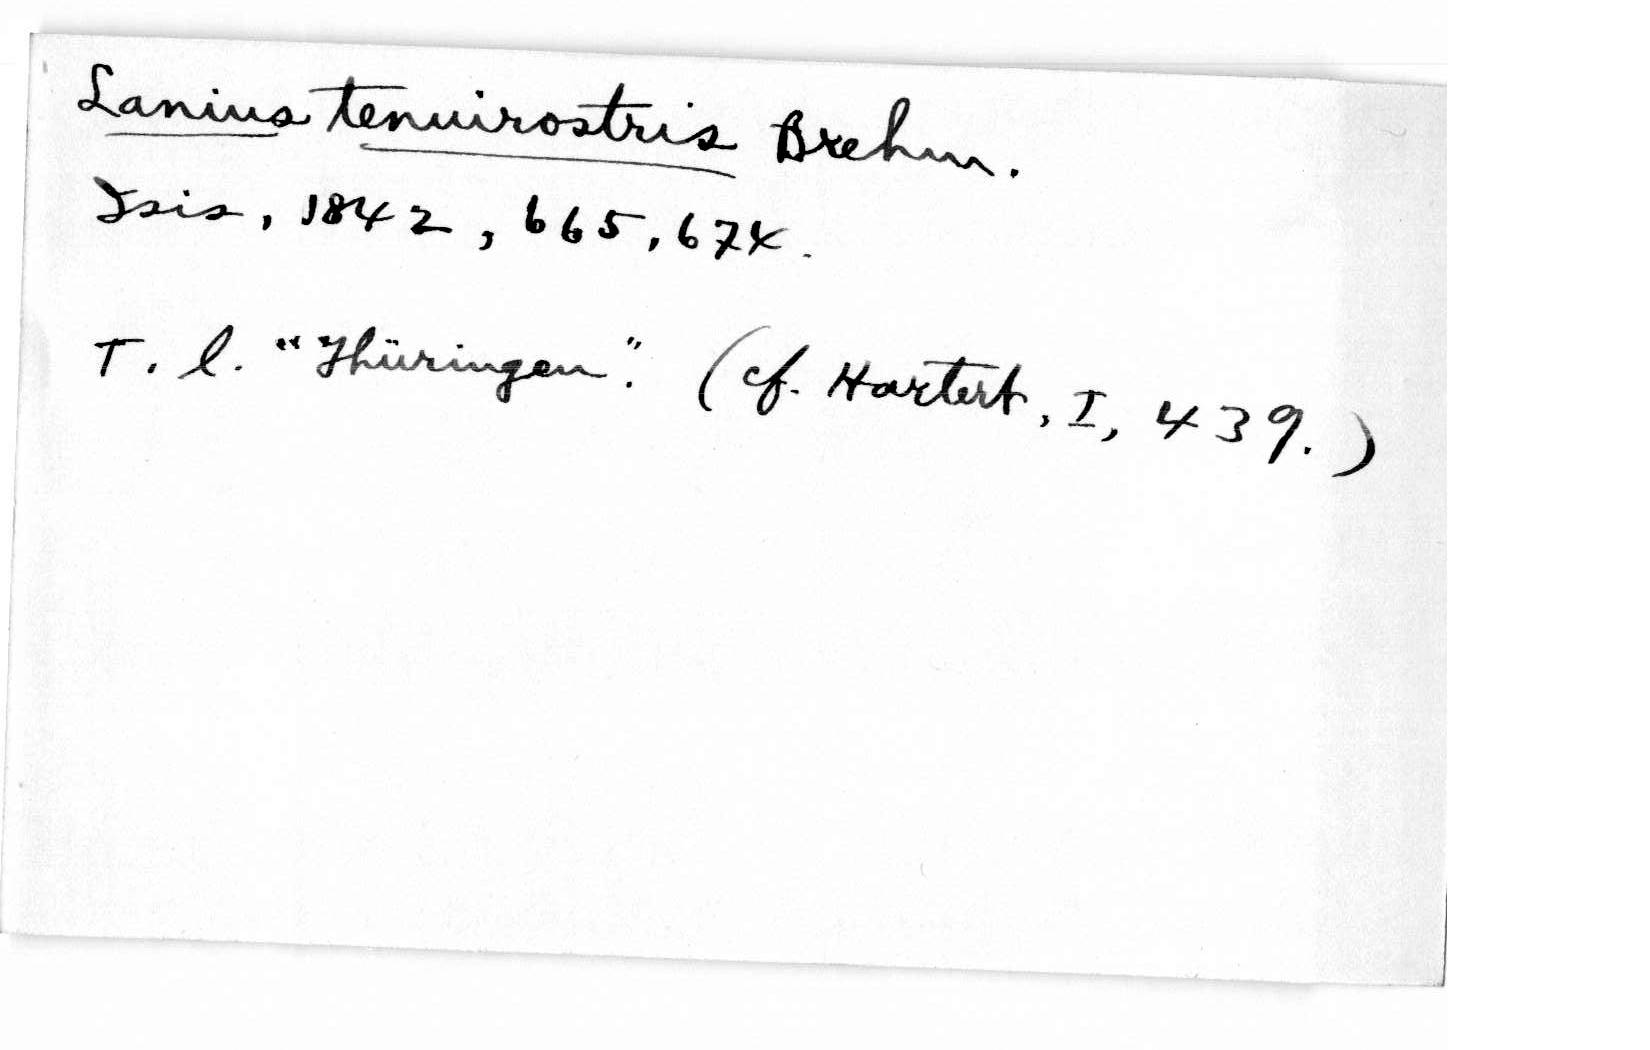 Lanius tenuirostris Brehm.
Isis, 1842, 665, 674.
T. l. "Thüringen". (cf. Hartert, I, 439.)